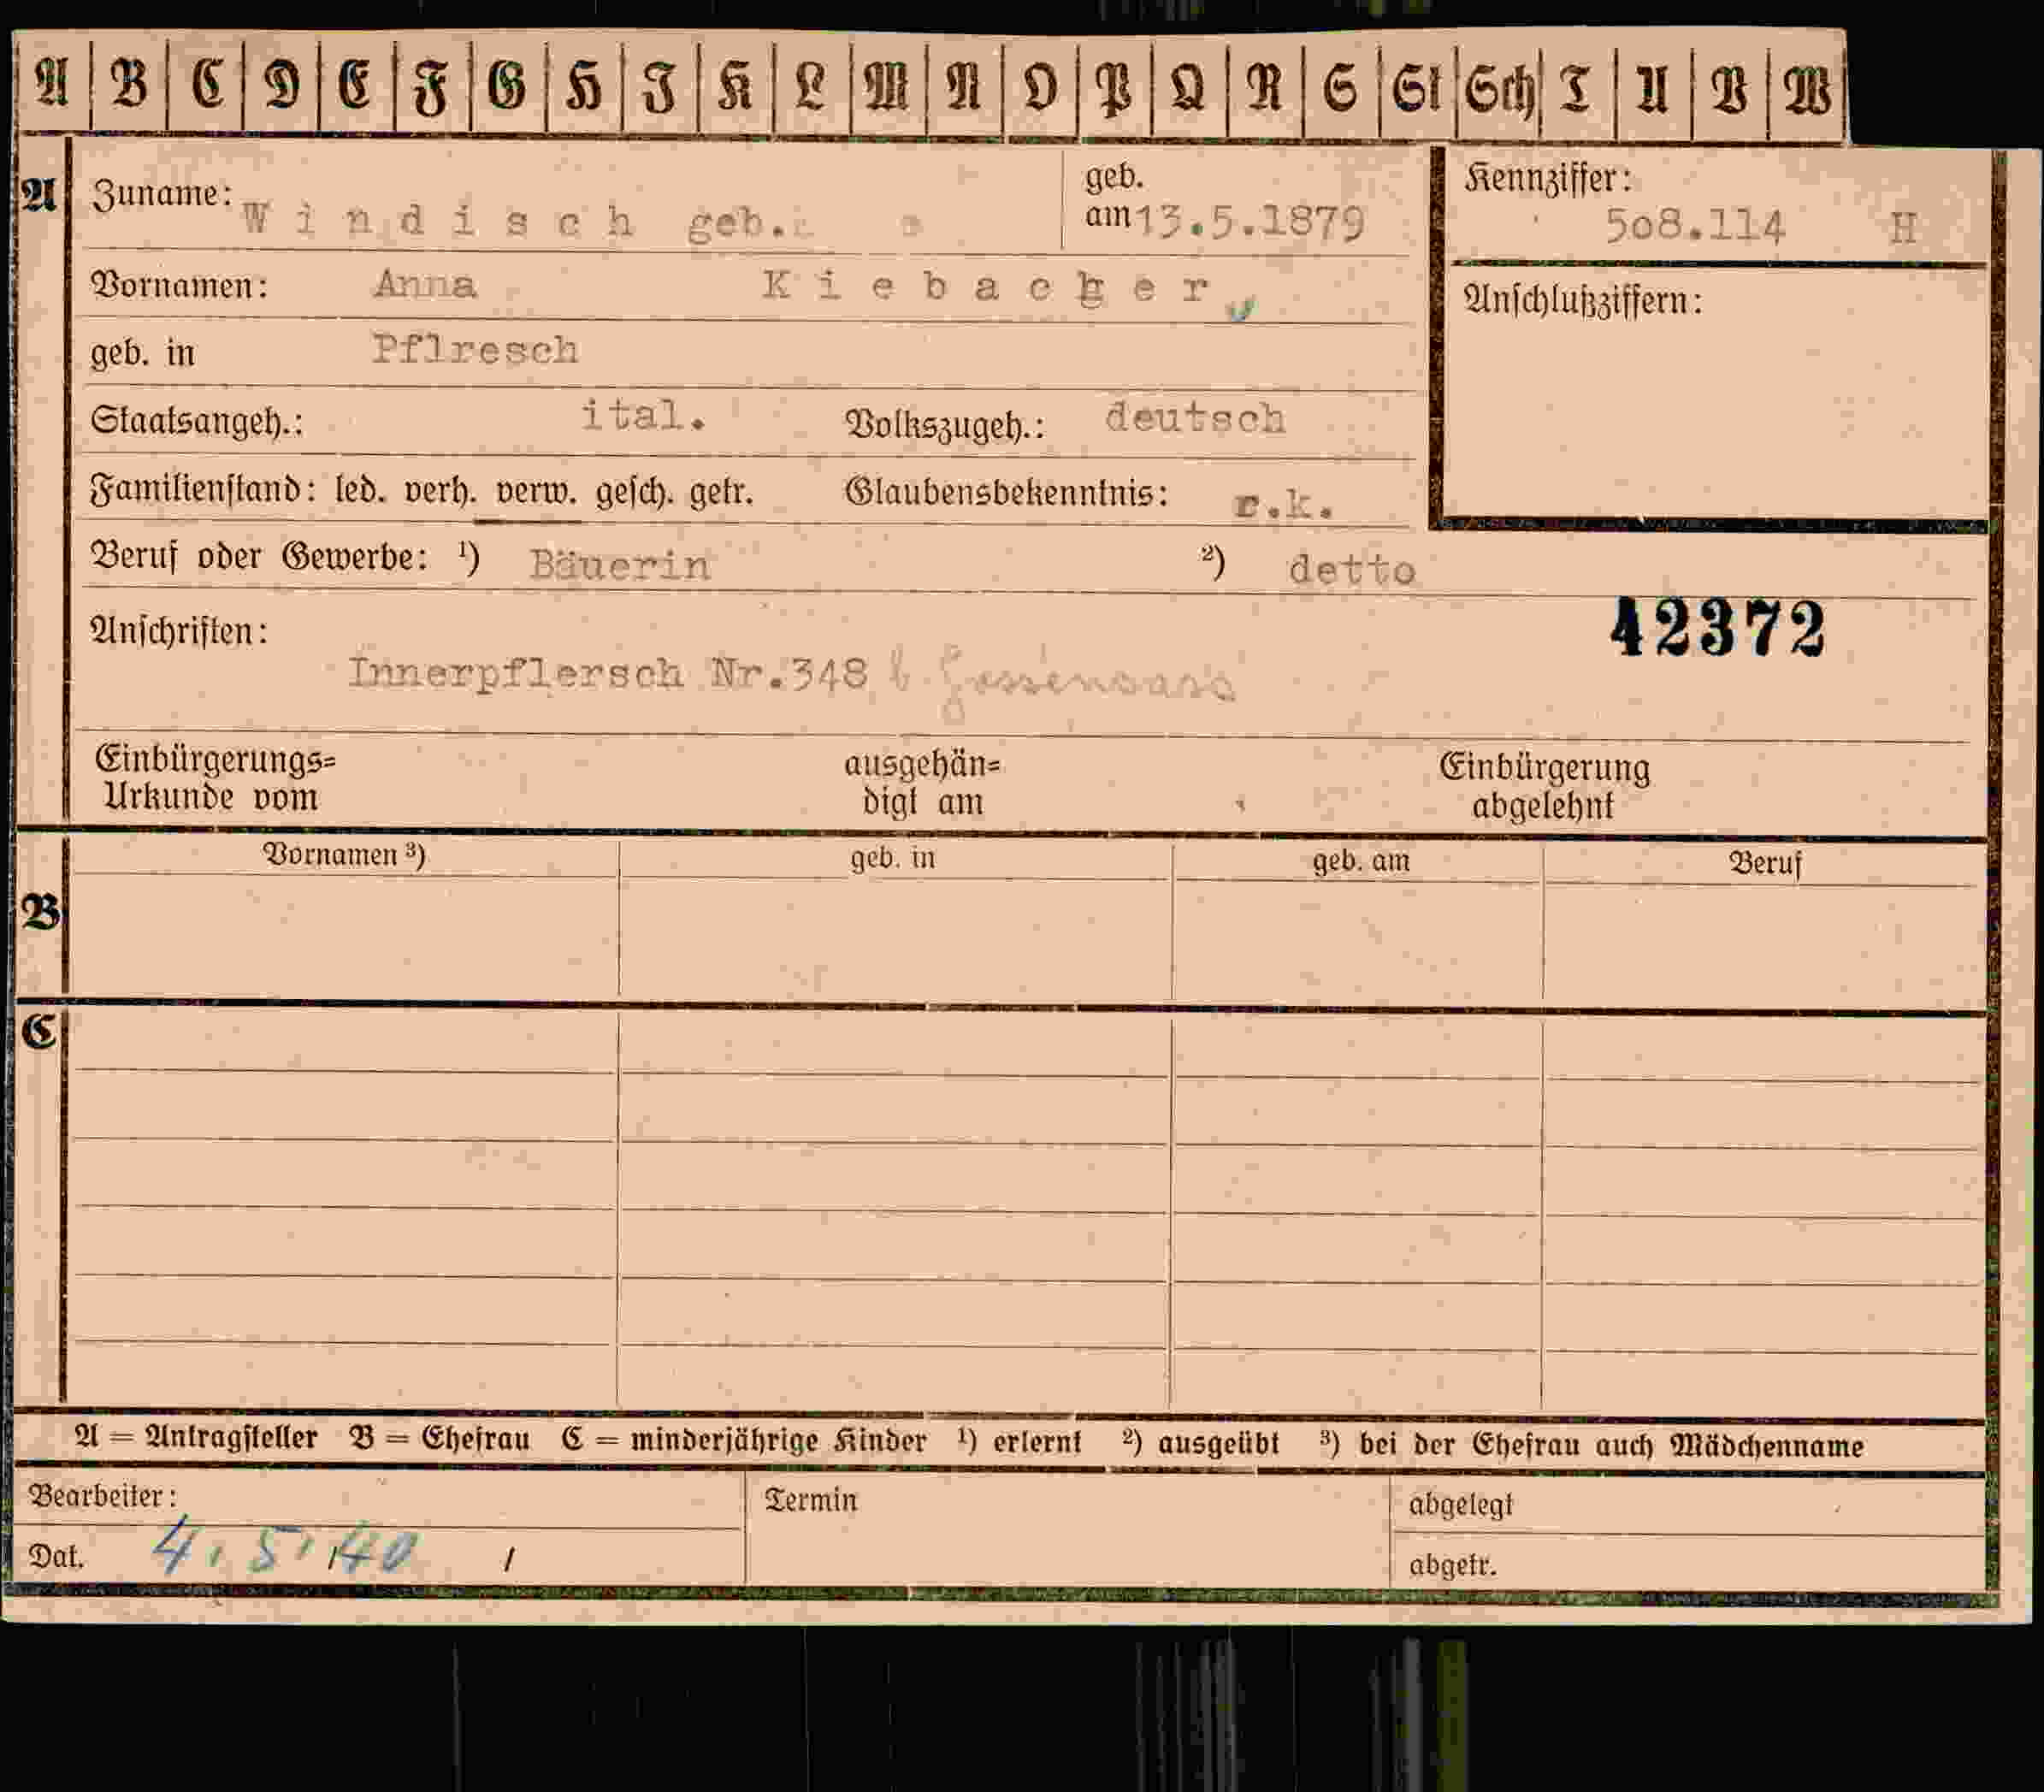 A B C D E F G H I K L M N O P Q R S St Sch T U V W
A Zuname: Windisch geb. geb. am 13.5.1879 Kennziffer: 5o8.114 H
Vornamen: Anna Kiebacher
Anschlußziffern:
geb. in Pflresch
Staatsangeh.: ital. Volkszugeh.: deutsch
Familienstand: led. verh. verw. gesch. getr. Glaubensbekenntnis: r.k.
Beruf oder Gewerbe: ¹) Bäuerin ²) detto
42372
Anschriften:
Innerpflersch Nr.348 b. Gossensass
Einbürgerungs= ausgehän= Einbürgerung
Urkunde vom digt am abgelehnt
Vornamen ³) geb. in geb. am Beruf
B
C
A = Antragsteller B = Ehefrau C = minderjährige Kinder ¹) erlernt ²) ausgeübt ³) bei der Ehefrau auch Mädchenname
Bearbeiter: Termin abgelegt
Dat. 4.5.40 / abgetr.